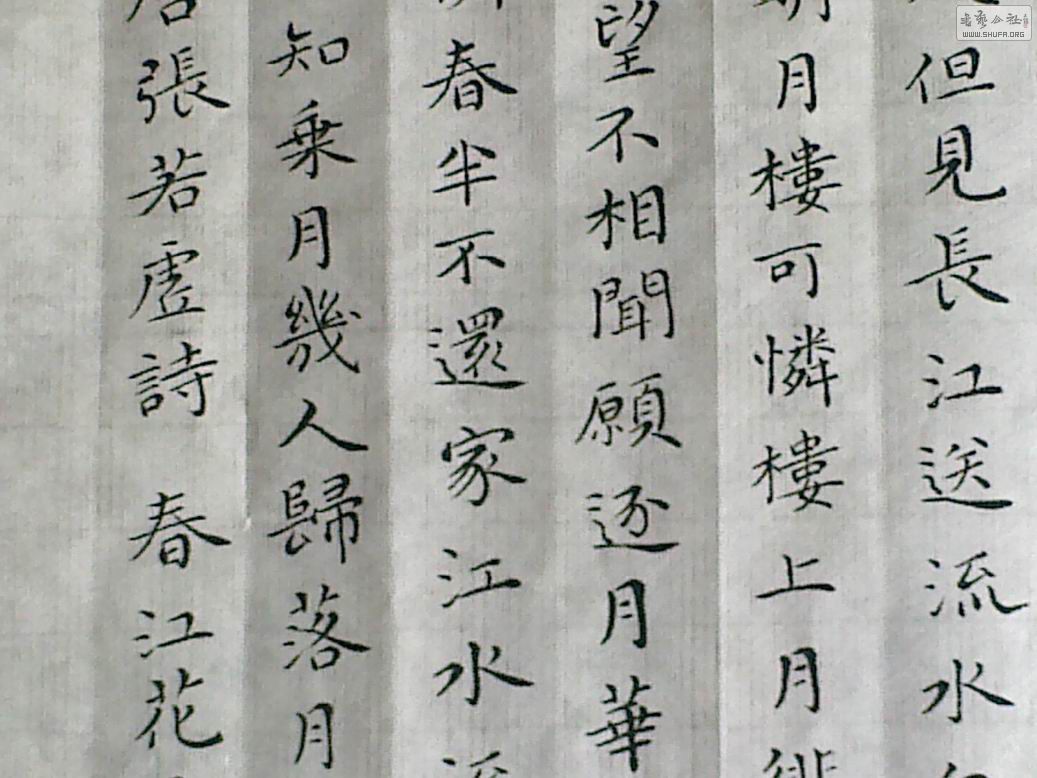 但見長江送流水
月樓可憐樓上月徘
望不相聞願逐月華
春半不還家江水流
知乗月幾人歸落月
唐張若虛詩 春江花
書藝公社
WWW.SHUFA.ORG